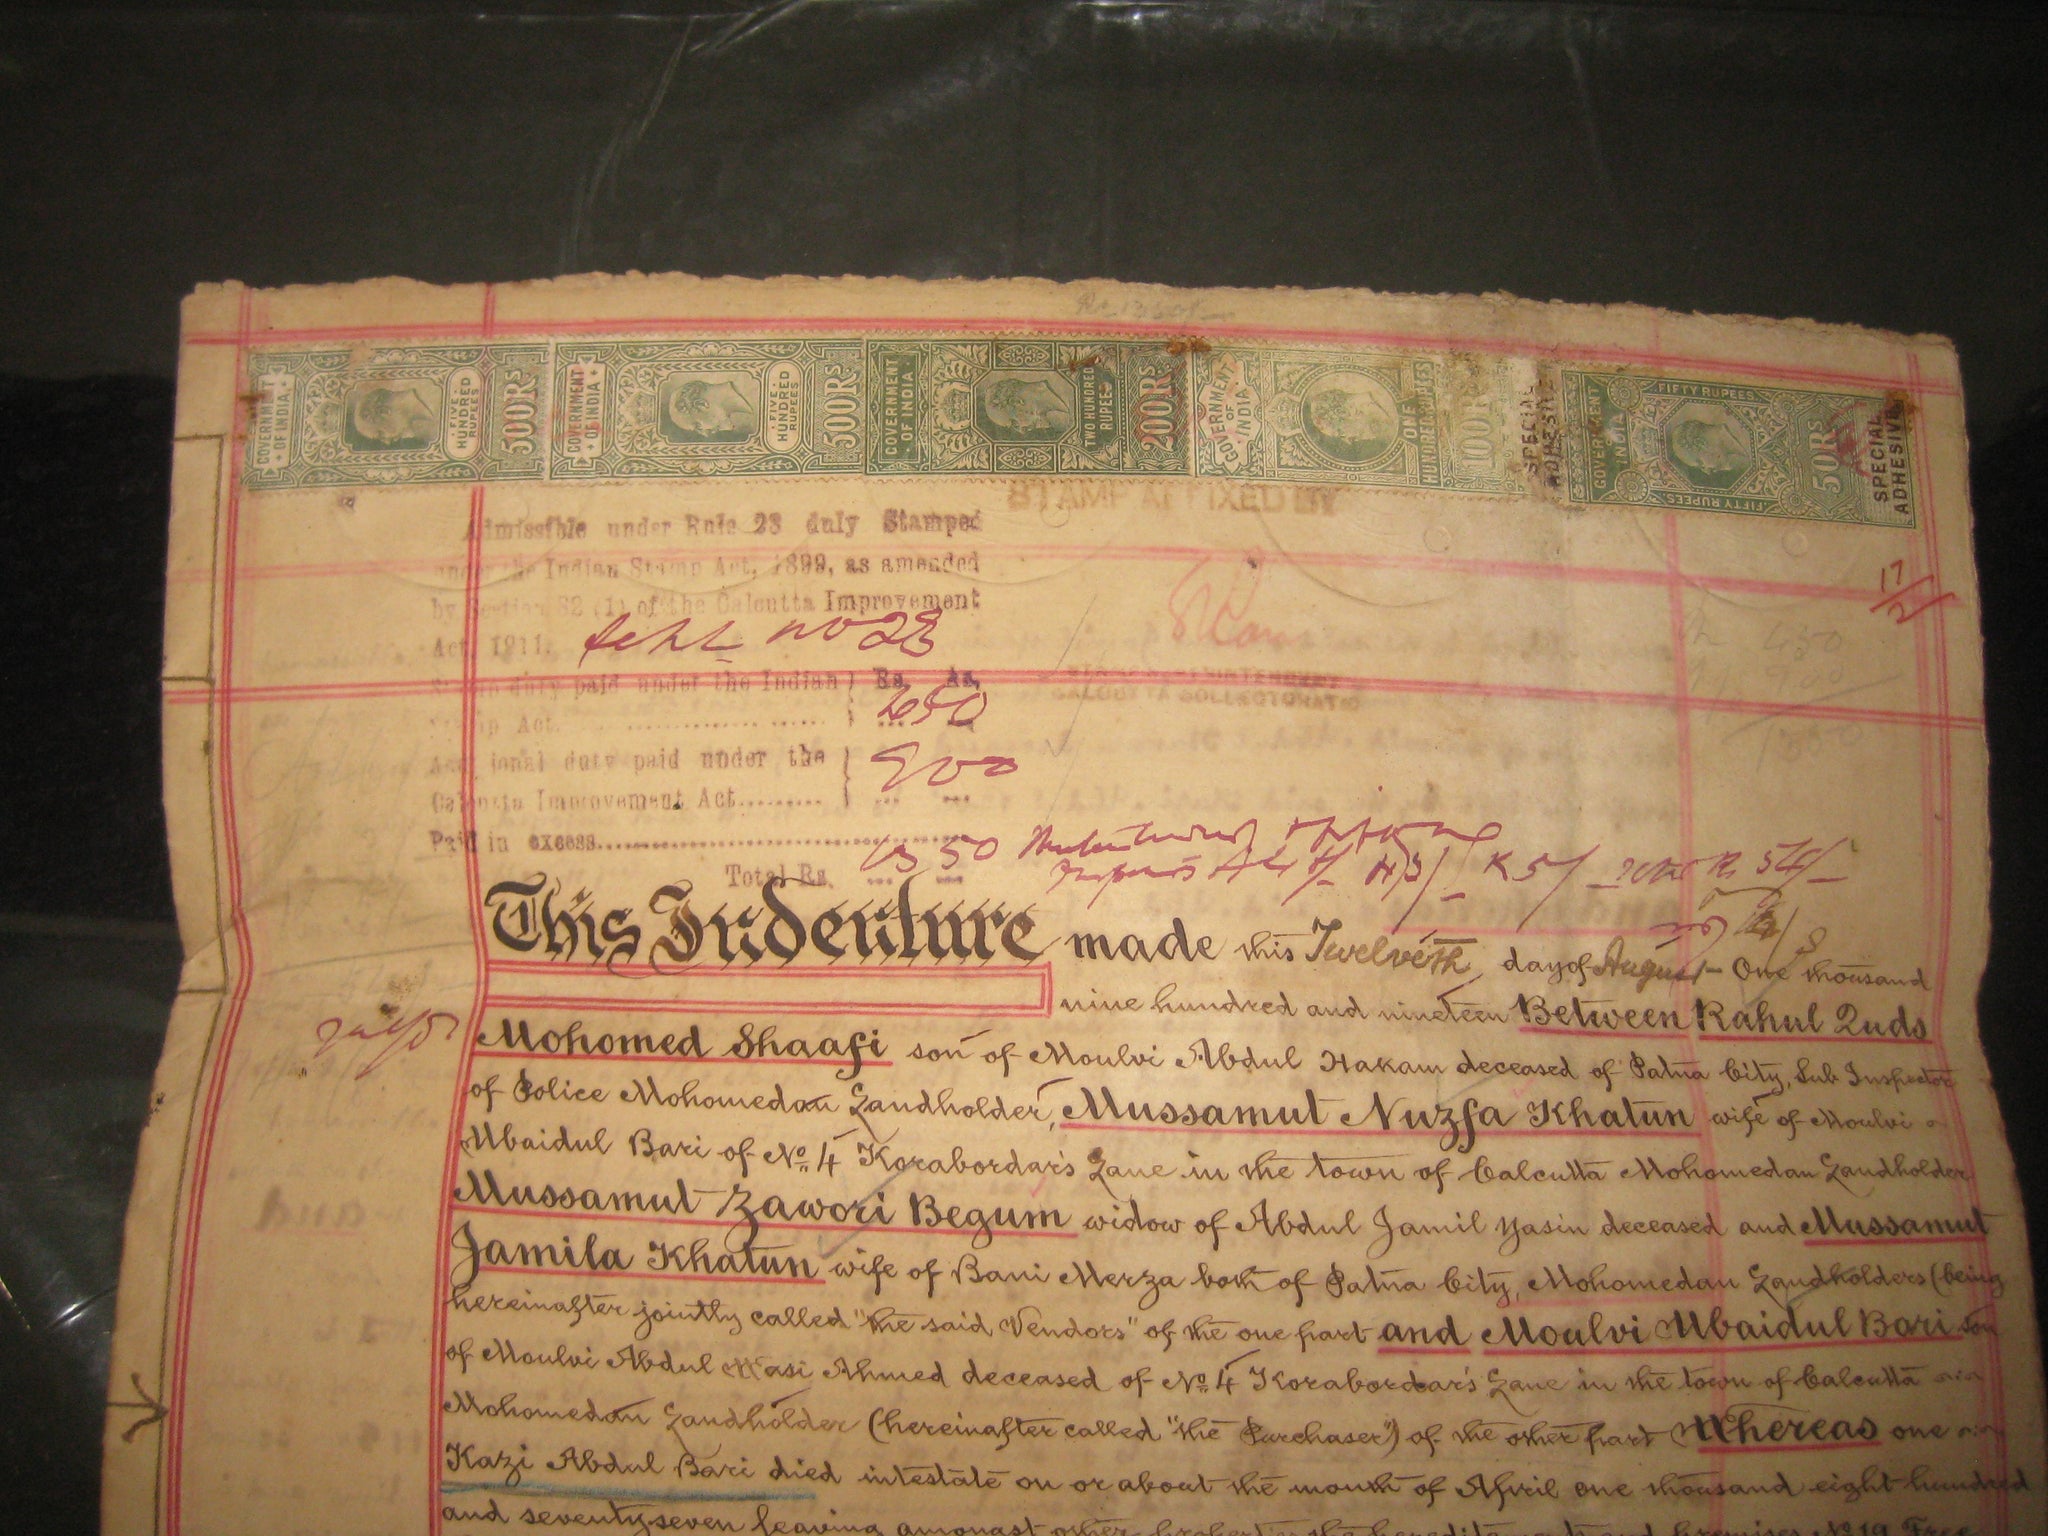 GOVERNMENT OF INDIA FIVE HUNDRED RUPEES 500Rs
GOVERNMENT OF INDIA FIVE HUNDRED RUPEES 500Rs
GOVERNMENT OF INDIA TWO HUNDRED RUPEES 200Rs
GOVERNMENT OF INDIA ONE HUNDRED RUPEES 100Rs SPECIAL ADHESIVE
GOVERNMENT INDIA FIFTY RUPEES FIFTY RUPEES 50Rs SPECIAL ADHESIVE
STAMP AFFIXED BY
17/2
Admissible under Rule 23 duly Stamped
under the Indian Stamp Act, 1899, as amended
by Section 82 (1) of the Calcutta Improvement
Act, 1911. no 23
Stamp duty paid under the Indian } Rs. As.
Stamp Act. 450
CALCUTTA COLLECTORATE
450
900
Additional duty paid under the } 900
Calcutta Improvement Act.........
Paid in excess.
Total Rs. 1350
This Indenture made this Twelveth day of August One thousand
nine hundred and nineteen Between Rahul Quds
Mohomed Shaafi son of Moulvi Abdul Hakam deceased of Patna City, Sub Inspector
of Police Mohomedan Landholder, Mussamut Nuzfa Khatun wife of Moulvi
Ubaidul Bari of No. 4 Korabordar's Lane in the town of Calcutta Mohomedan Landholder
Mussamut Zawori Begum widow of Abdul Jamil Yasin deceased and Mussamut
Jamila Khatun wife of Bani Merza both of Patna City, Mohomedan Landholders (being
hereinafter jointly called "the said Vendors" of the one part and Moulvi Ubaidul Bari son
of Moulvi Abdul Wasi Ahmed deceased of No. 4 Korabordar's Lane in the town of Calcutta
Mohomedan Landholder (hereinafter called "the Purchaser") of the other part Whereas one
Kazi Abdul Bari died intestate on or about the month of April one thousand eight hundred
and seventy seven leaving amongst other property the hereditaments and premises No. 19